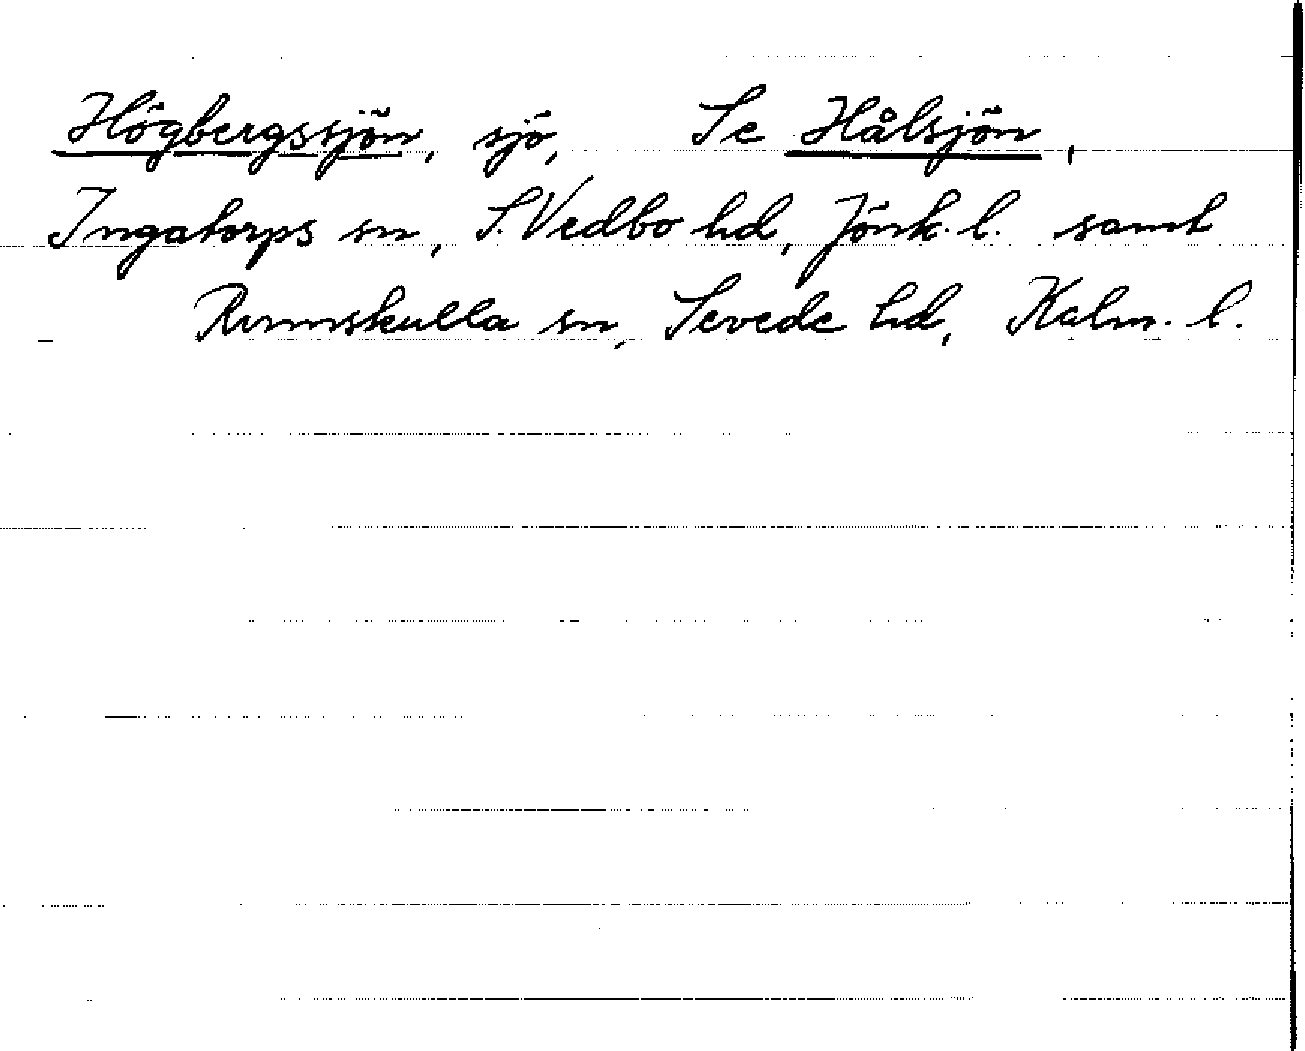 Högbergssjön, sjö, Se Hålsjön,
Ingatorps sn, S. Vedbo hd, Jönk. l. samt
Rumskulla sn, Sevede hd, Kalm. l.